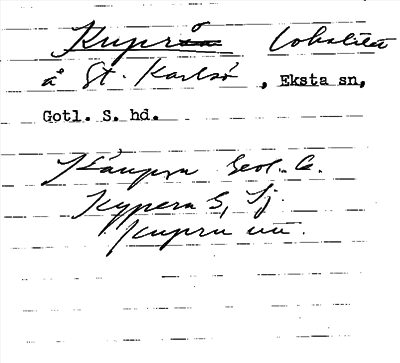 Kuprö lokalitet
å St. Karlsö, Eksta sn,
Gotl. S. hd.
Käupru Geol. k.
Kypern S, Sj.
Kupru uu.